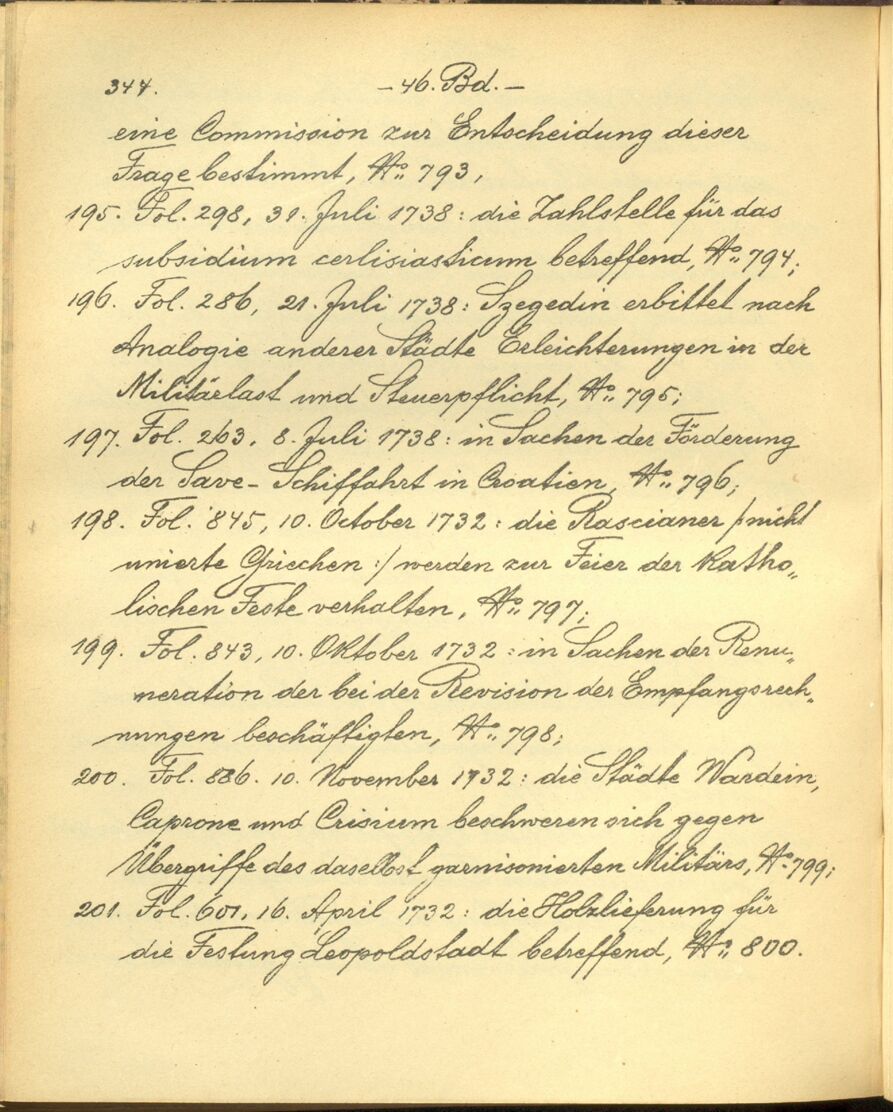 344.
- 46. Bd. -
eine Commission zur Entscheidung dieser
Frage bestimmt, No. 793,
195. Fol. 298, 31. Juli 1738: die Zahlstelle für das
subsidium cerlisiasticum betreffend, No. 794;
196. Fol. 286, 21. Juli 1738: Szegedin erbittet nach
Analogie anderer Städte Erleichterungen in der
Militärlast und Steuerpflicht, No. 795;
197. Fol. 263, 8. Juli 1738: in Sachen der Förderung
der Save-Schiffahrt in Croatien, No. 796;
198. Fol. 845, 10. October 1732: die Rascianer /:nicht
unierte Griechen:/ werden zur Feier der katho„
lischen Feste verhalten, No. 797;
199. Fol. 843, 10. Oktober 1732: in Sachen der Renu„
neration der bei der Revision der Empfangsrech„
nungen beschäftigten, No. 798;
200. Fol. 886. 10. November 1732: die Städte Wardein,
Caprone und Crisium beschweren sich gegen
Übergriffe des daselbst garnisonierten Militärs, No. 799;
201. Fol. 601, 16. April 1732: die Holzlieferung für
die Festung Leopoldstadt betreffend, No. 800.